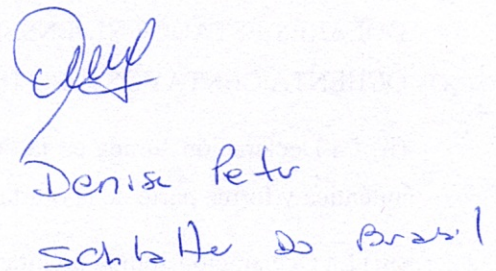 Denise Petr
Schlatter Do Brasil